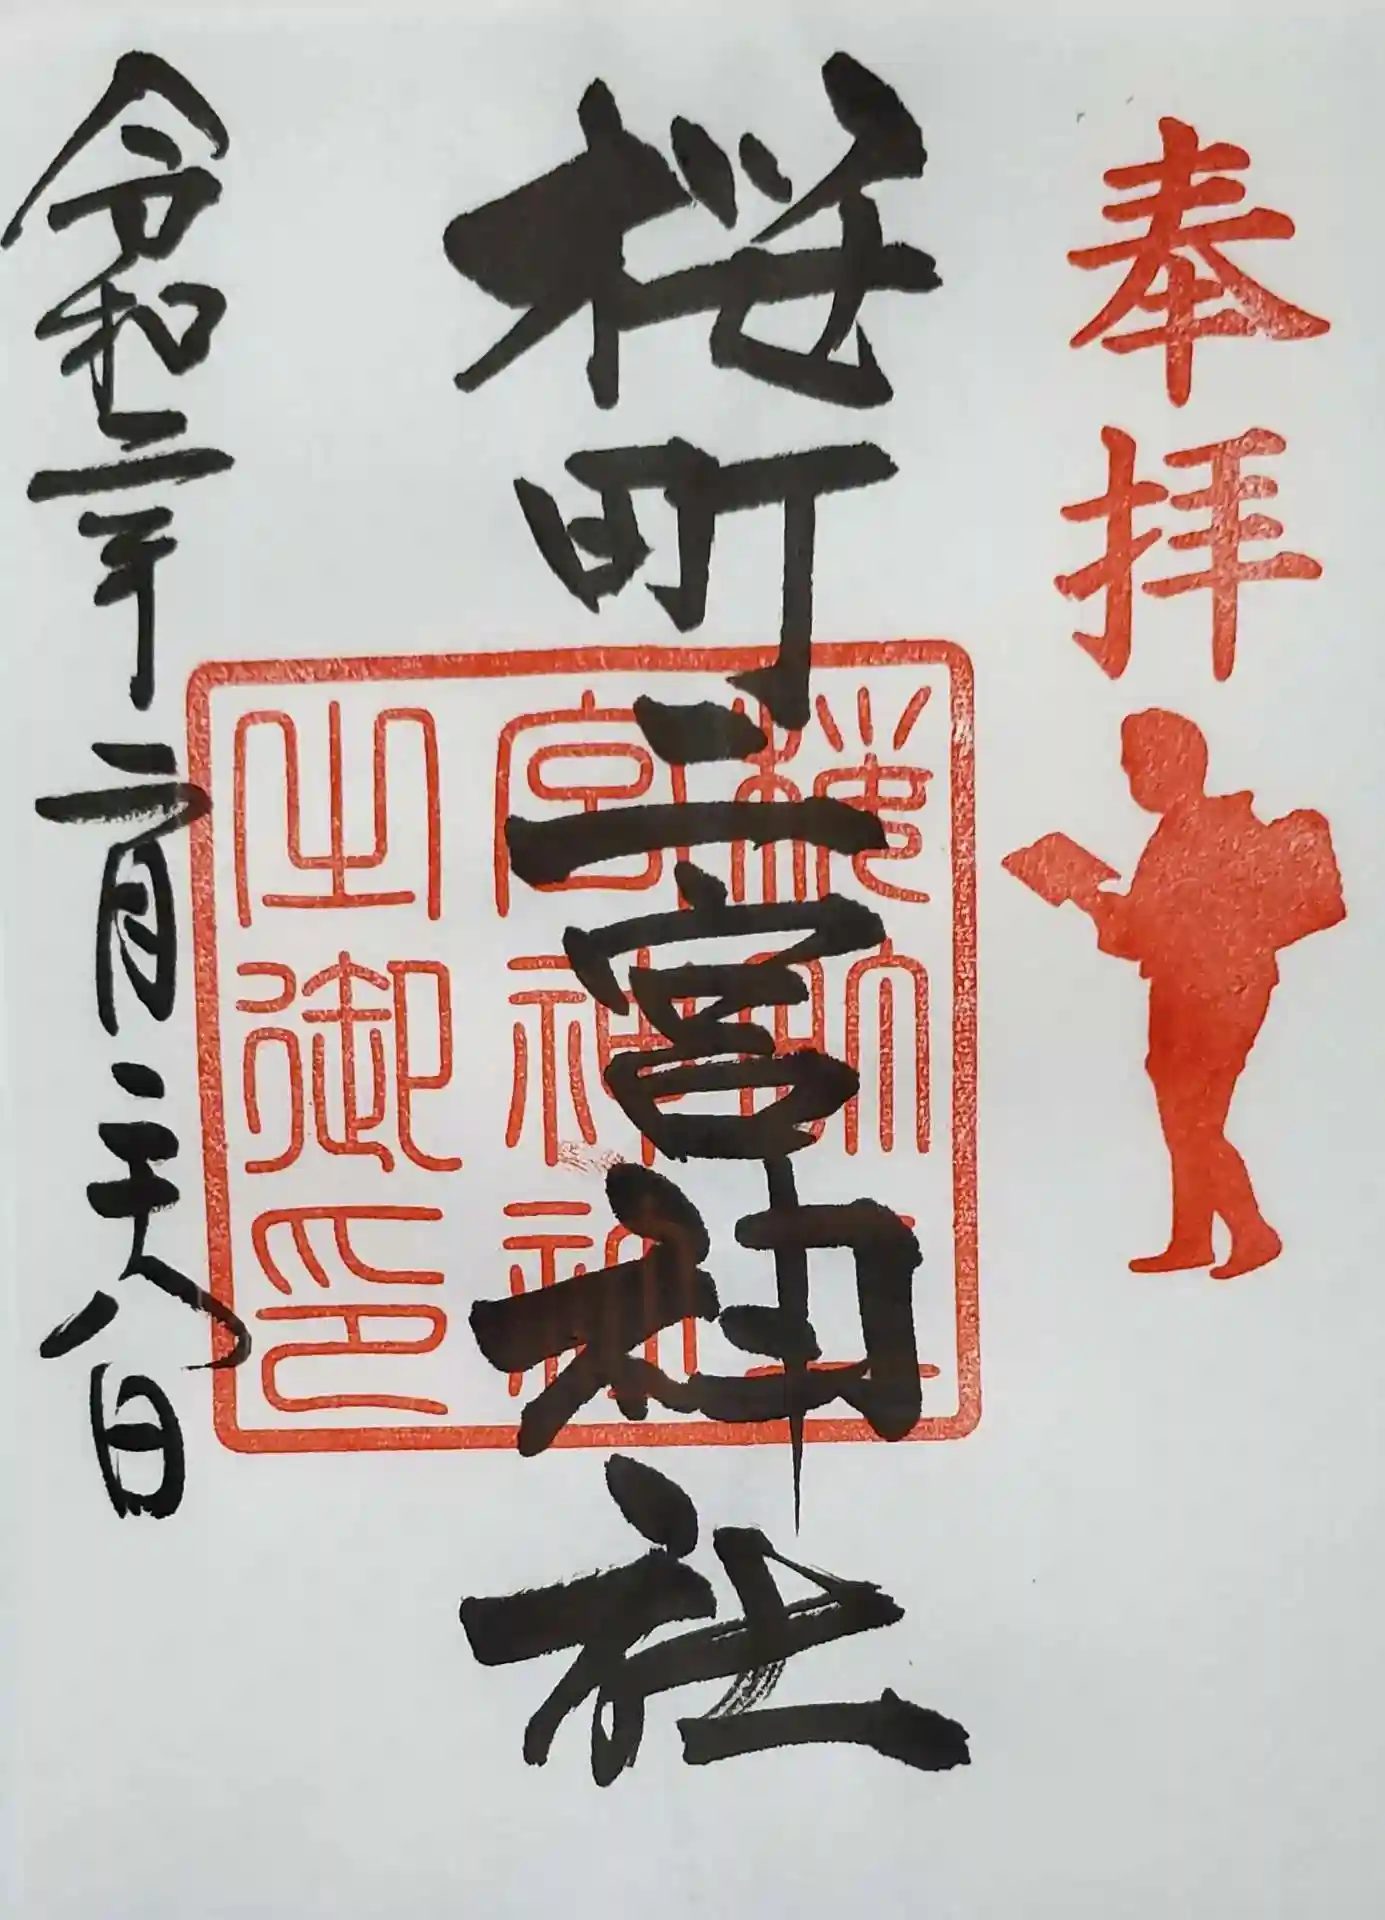 奉拝
桜町二宮神社
櫻町二
宮神社
之御印
令和二年二月二十八日